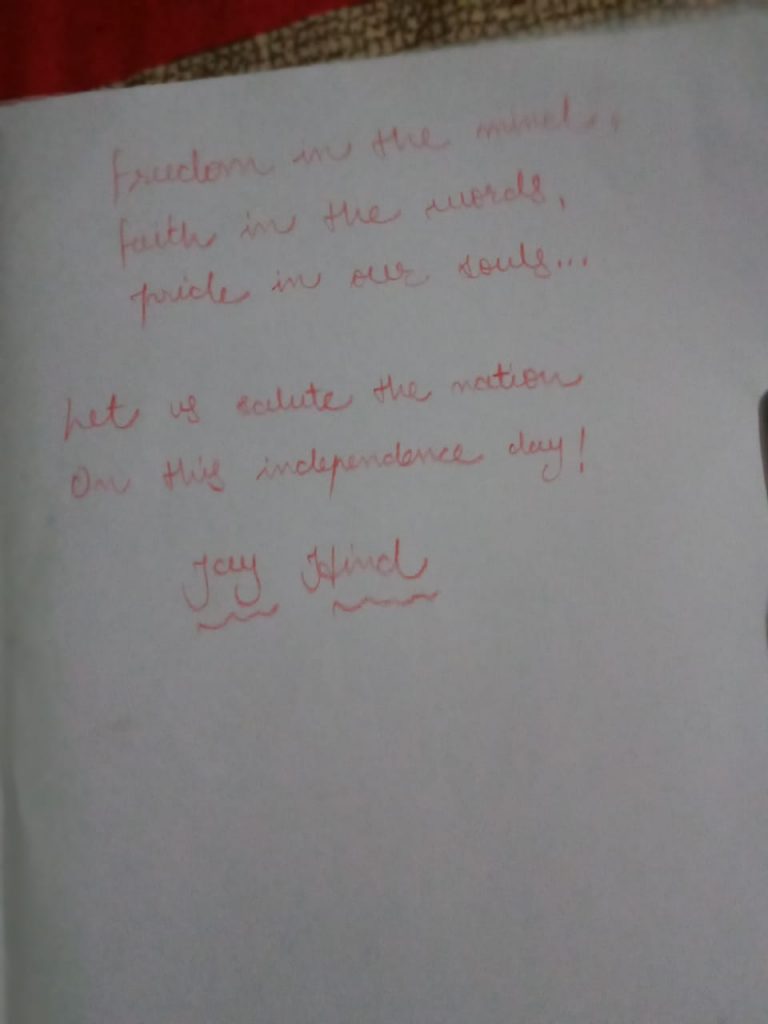 freedom in the mind,
faith in the words,
pride in our souls...
Let us salute the nation
On this independence day!
Jay Hind